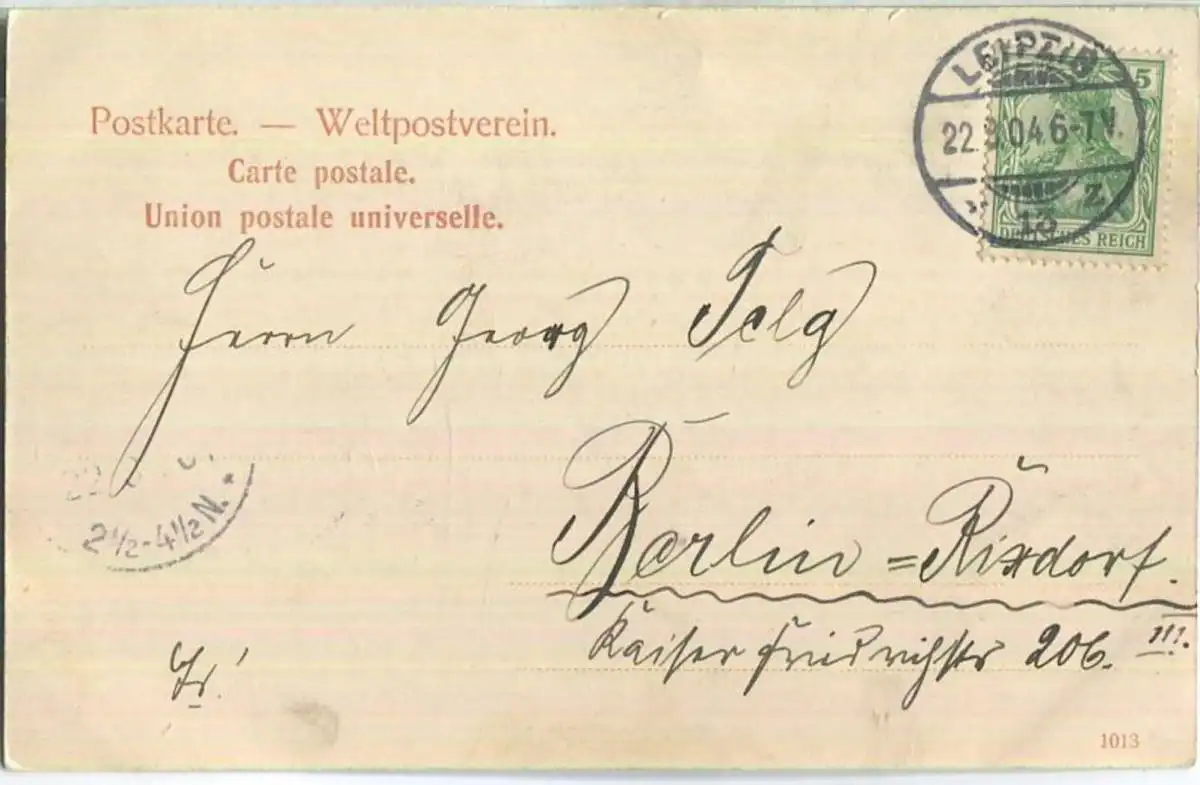 Postkarte. — Weltpostverein.
Carte postale.
Union postale universelle.
LEIPZIG
22. 04. 6-7 V.
13 z
5
DEUTSCHES REICH
Herrn Georg Selg
Berlin = Rixdorf.
Kaiser Friedrichstr 206. III.
22
2½-4½N.
Fr!
1013